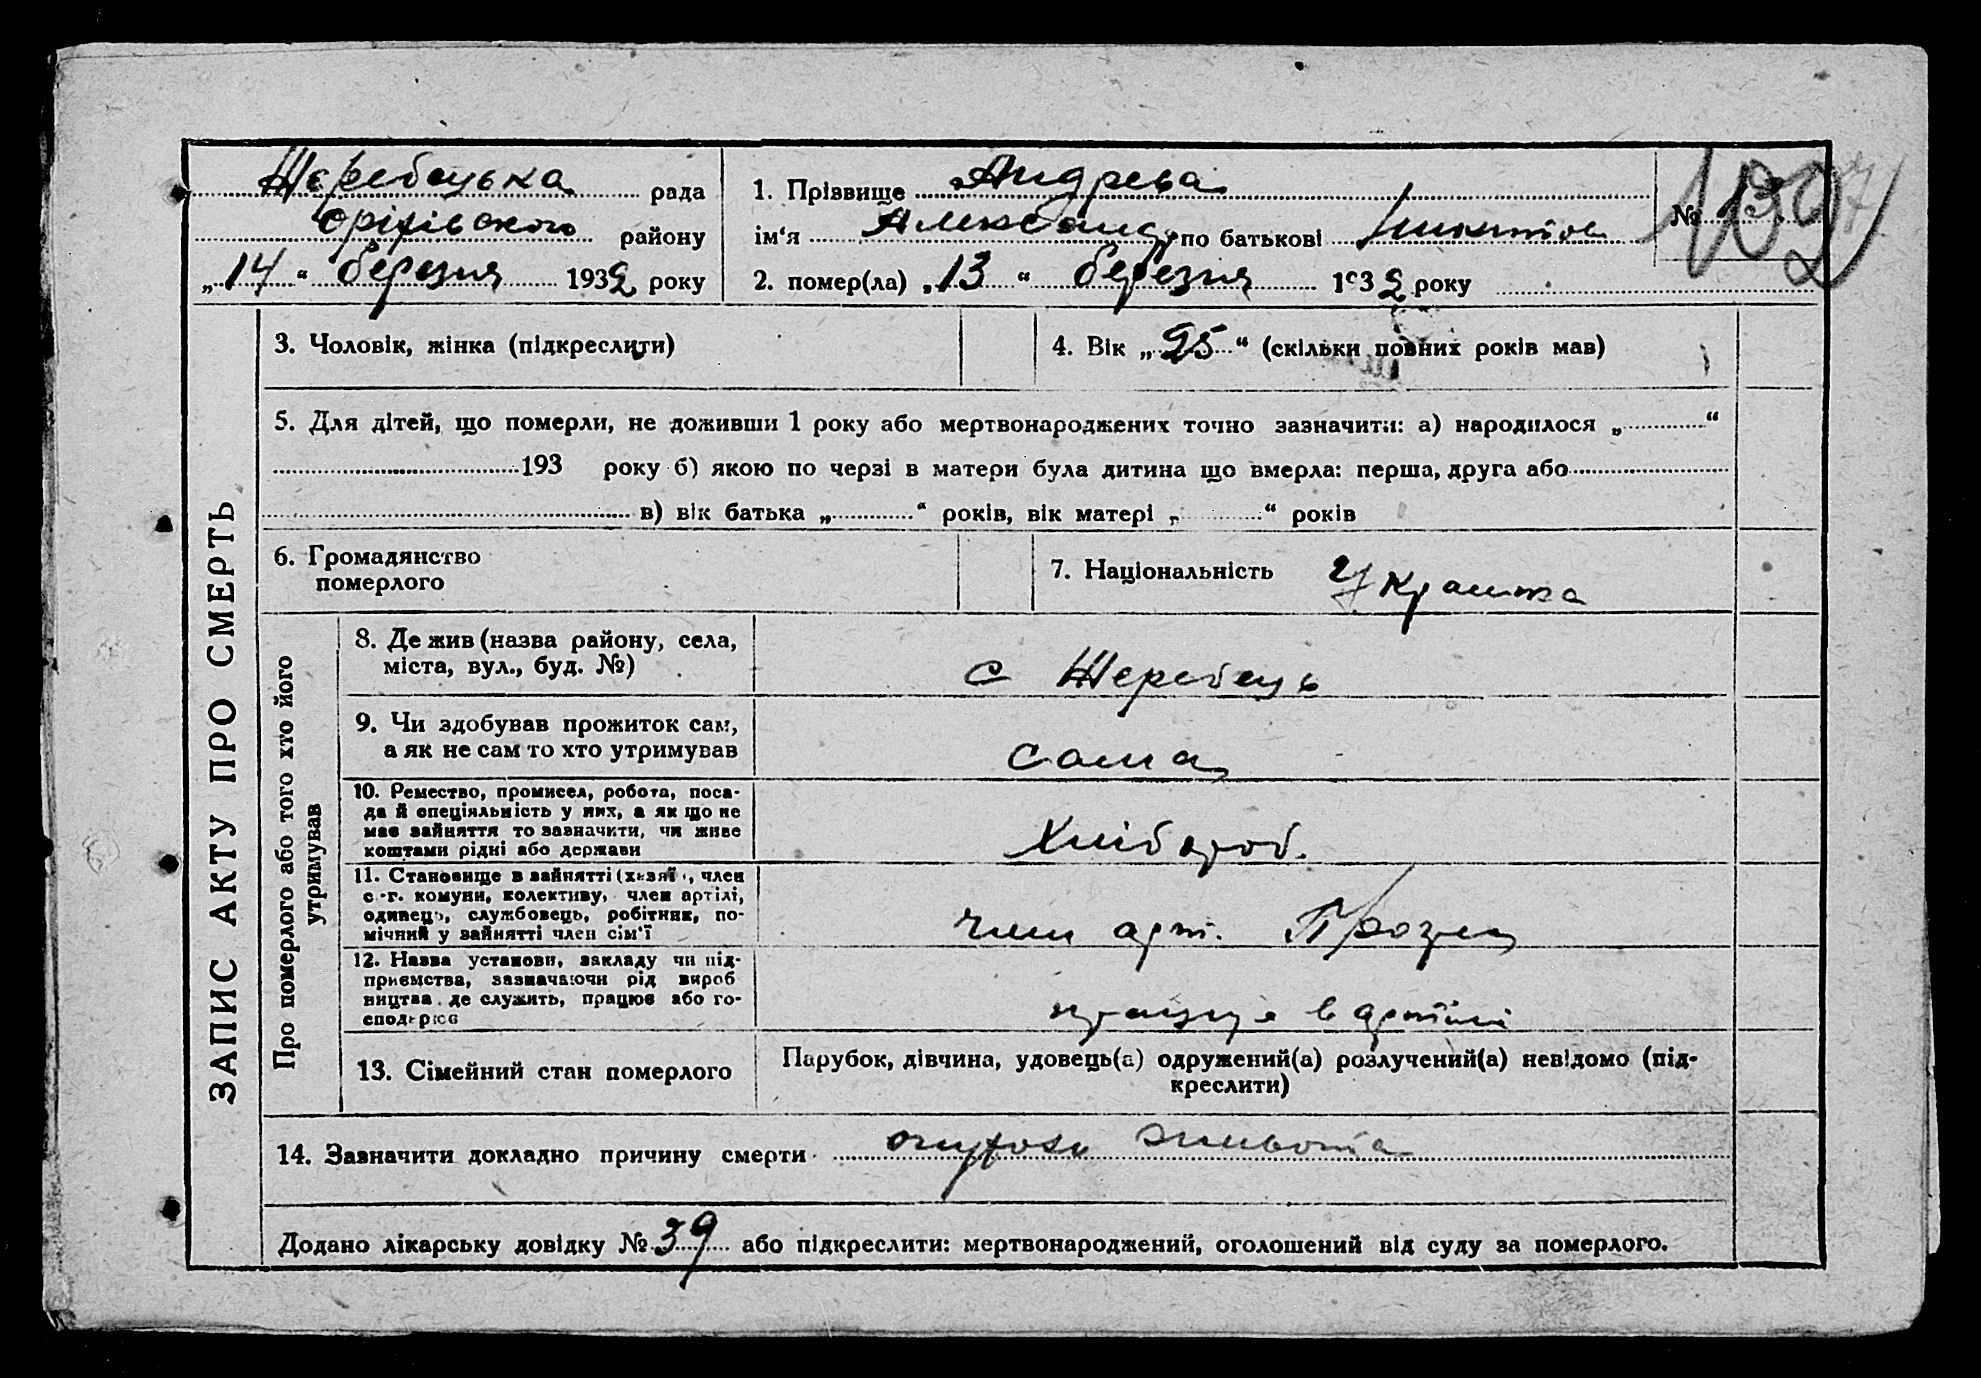 Жеребецька рада
Оріхівського району
„14“ березня 1932 року
1. Прізвище Андрєва
ім'я Александ по батькові
2. помер(ла) „13“ березня 1932 року
№
ЗАПИС АКТУ ПРО СМЕРТЬ
3. Чоловік, жінка (підкреслити)
4. Вік „25“ (скільки повних років мав)
5. Для дітей, що померли, не доживши 1 року або мертвонароджених точно зазначити: а) народилося „ “
193 року б) якою по черзі в матери була дитина що вмерла: перша, друга або
в) вік батька „ “ років, вік матері „ “ років
6. Громадянство
померлого
7. Національність Украінка
Про померлого або того хто його
утримував
8. Де жив (назва району, села,
міста, вул., буд. №)
с Жеребець
9. Чи здобував прожиток сам,
а як не сам то хто утримував
сама
10. Ремество, промисел, робота, поса-
да й спеціяльність у них, а як що не
має зайняття то зазначити, чи живе
коштами рідні або держави
Хлібороб.
11. Становище в зайнятті (хазяї , член
с.-г. комуни, колективу, член артілі,
одинець, службовець, робітник, по-
мічний у зайнятті член сім'ї
член арт.
12. Назва установи, закладу чи під-
приємства, зазначаючи рід вироб
ництва де служить, працює або го-
сподарює
працює в артілі
13. Сімейний стан померлого
Парубок, дівчина, удовець(а) одружений(а) розлучений(а) невідомо (під-
креслити)
14. Зазначити докладно причину смерти живота
Додано лікарську довідку № 39 або підкреслити: мертвонароджений, оголошений від суду за померлого.